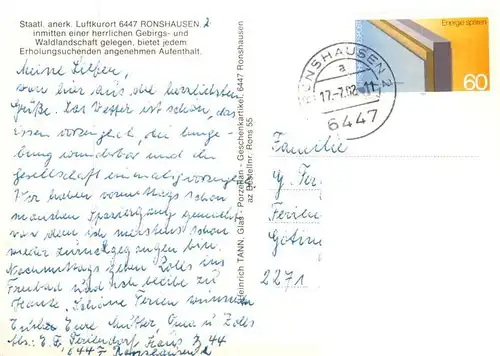 Staatl. anerk. Luftkurort 6447 RONSHAUSEN. 2
inmitten einer herrlichen Gebirgs- und
Waldlandschaft gelegen, bietet jedem
Erholungsuchenden angenehmen Aufenthalt.
Meine Lieben,
von hier aus die herzlichsten
Grüße. Das Wetter ist schön, das
Essen vorzüglich, die Umge-
bung wunderbar und die
Gesellschaft einmalig vorzüglich
Wir haben vormittags schon
manchen Spaziergang gemacht
von dem ich meistens schon
wieder zurückgegangen bin.
Nachmittags gehen Zolls ins
Freibad und ich bleibe zu
Hause. Schöne Ferien wünschen
Euch Eure Mutter, Oma u Zolls
Abs.: E. F. Feriendorf Haus 44
6447 Ronshausen 2
Heinrich TANN, Glas - Porzellan - Geschenkartikel, 6447 Ronshausen
az Bestellnr. Rons 55
Energie sparen
60
RONSHAUSEN 2
a
17.-7.82.-11
6447
Familie
G.
Ferien
2271